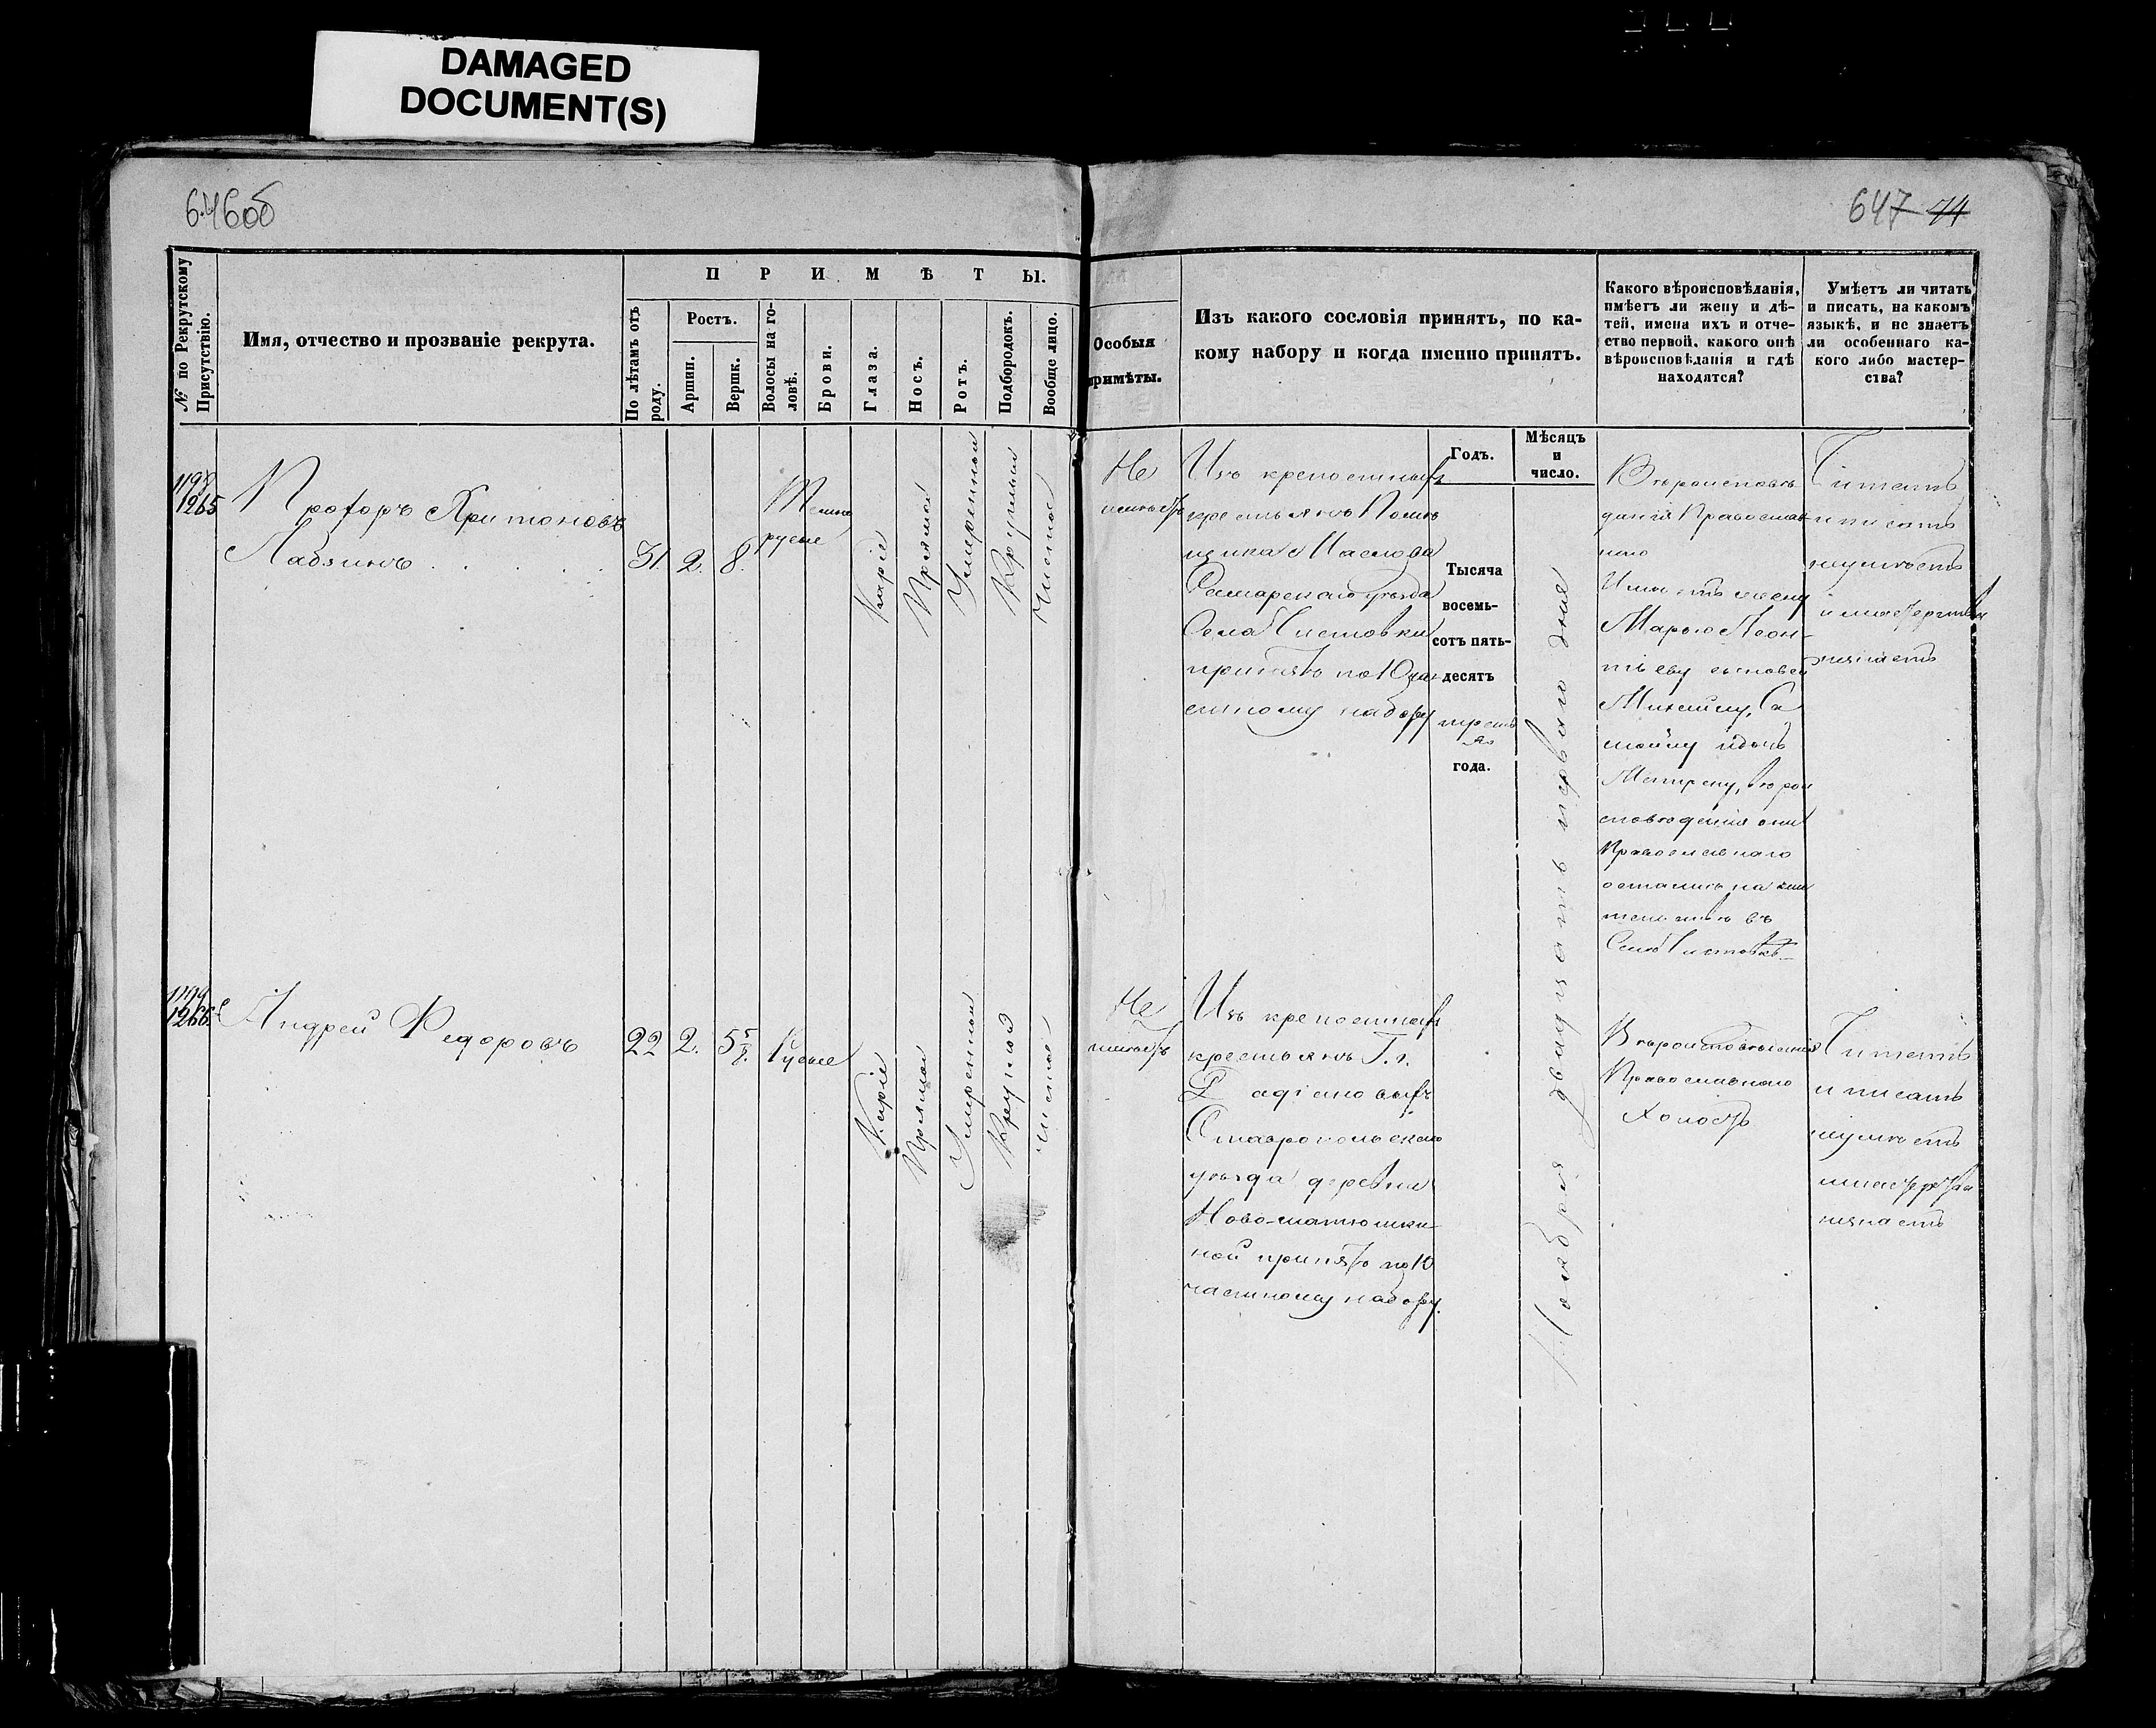 DAMAGED
DOCUMENT(S)
646об
647 74
№ по Рекрутскому
Присутствію.
Имя, отчество и прозваніе рекрута.
ПРИМѢТЫ.
По лѣтамъ отъ
роду.
Ростъ.
Аршин.
Вершк.
Волосы на го-
ловѣ.
Брови.
Глаза.
Носъ.
Ротъ.
Подбородокъ.
Вообще лицо.
Особыя
примѣты.
Изъ какого сословія принятъ, по ка-
кому набору и когда именно принятъ.
Какого вѣроисповѣданія,
имѣетъ ли жену и дѣ-
тей, имена ихъ и отче-
ство первой, какого онѣ
вѣроисповѣданія и гдѣ
находятся?
Умѣетъ ли читать
и писать, на какомъ
языкѣ, и не знаетъ
ли особеннаго ка-
кого либо мастер-
ства?
Годъ.
Мѣсяцъ
и
число.
1198
1265
Прохоръ Харитоновъ
Лабзинъ
31.
2.
8.
Темно
русые
Каріе
Прямой
Умеренный
Круглый
Чистое
Не
имѣетъ
Изъ крепостныхъ
крестьянъ Помѣ
щика
Самарскаго уѣзда
Села Чистовки
принятъ по 10 ча-
стному набору
Тысяча
восемь-
сотъ пять-
десятъ
третья
го
года.
Ноября двадцать перваго дня
Вѣроисповѣ
данія Православ
наго
Имѣетъ жену
Марью Леон-
тьеву сыновей
Михайлу, Са
мойлу и дочь
Матрену, вѣрои
сповѣданія они
Православнаго
остались на жи
тельствѣ въ
Селѣ Чистовкѣ
Читать
и писать
неумѣетъ
и мастерства
незнаетъ
1199
1266
Андрей Федоровъ
22
2.
5 5/8.
Русые
Каріе
Прямой
Умеренный
Круглый
Чистое
Не
имѣетъ
Изъ крепостныхъ
крестьянъ Г. г.
Ставропольскаго
уѣзда деревни
Ново-матюшки-
ной принятъ по 10
частному набору.
Вѣроисповѣданія
Православнаго
Холостъ
Читать
и писать
неумѣетъ
и мастерства
незнаетъ